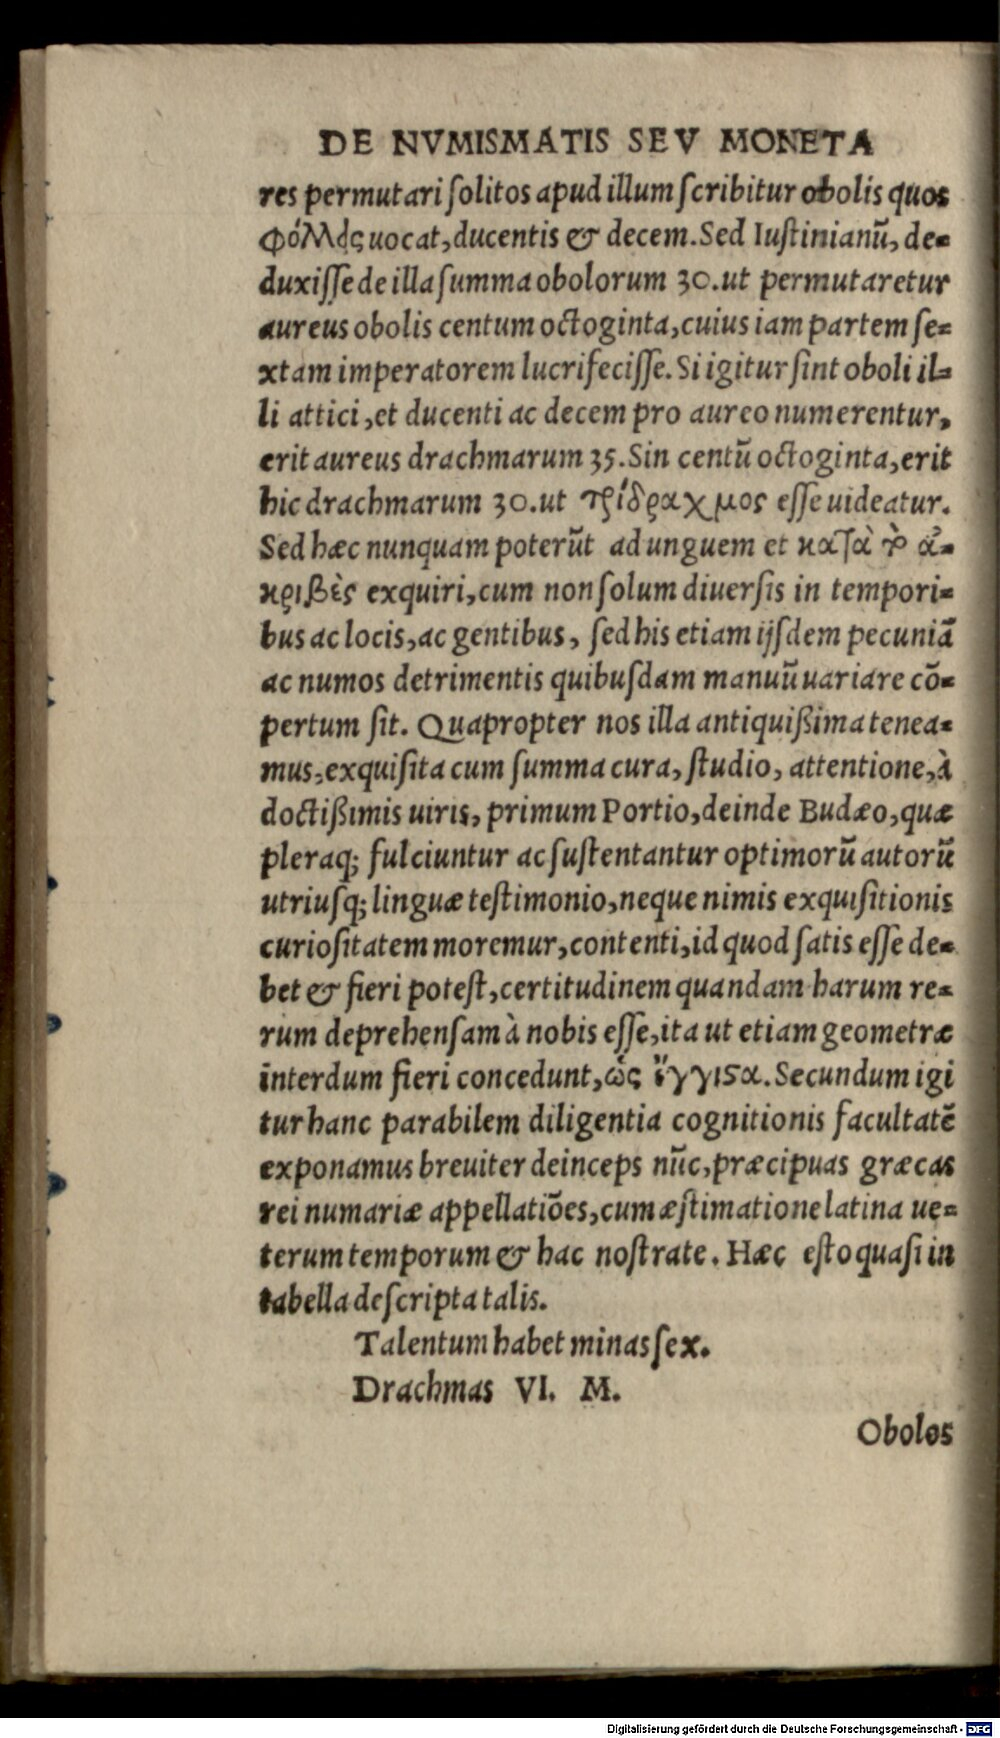 DE NVMISMATIS SEV MONETA
res permutari ſolitos apud illum ſcribitur obolis quos
φόλλις uocat, ducentis & decem. Sed Iuſtinianũ, de-
duxiſſe de illa ſumma obolorum 30. ut permutaretur
aureus obolis centum octoginta, cuius iam partem ſe-
xtam imperatorem lucrifeciſſe. Si igitur ſint oboli il-
li attici, et ducenti ac decem pro aureo numerentur,
erit aureus drachmarum 35. Sin centũ octoginta, erit
hic drachmarum 30. ut τρίδραχμος eſſe uideatur.
Sed hæc nunquam poterũt ad unguem et κατὰ τὸ ἀ-
κριβὲς exquiri, cum non ſolum diuerſis in tempori-
bus ac locis, ac gentibus, ſed his etiam ijſdem pecuniã
ac numos detrimentis quibuſdam manuũ uariare cõ-
pertum ſit. Quapropter nos illa antiquißima tenea-
mus, exquiſita cum ſumma cura, ſtudio, attentione, à
doctißimis uiris, primum Portio, deinde Budæo, quæ
pleraq; fulciuntur ac ſuſtentantur optimorũ autorũ
utriuſq; linguæ teſtimonio, neque nimis exquiſitionis
curioſitatem moremur, contenti, id quod ſatis eſſe de-
bet & fieri poteſt, certitudinem quandam harum re-
rum deprehenſam à nobis eſſe, ita ut etiam geometræ
interdum fieri concedunt, ὡς ἔγγιϛα. Secundum igi
tur hanc parabilem diligentia cognitionis facultatẽ
exponamus breuiter deinceps nũc, præcipuas græcas
rei numariæ appellatiões, cum æſtimatione latina ue-
terum temporum & hac noſtrate. Hæc eſto quaſi in
tabella deſcripta talis.
Talentum habet minas ſex.
Drachmas VI. M.
Obolos
Digitalisierung gefördert durch die Deutsche Forschungsgemeinschaft - DFG